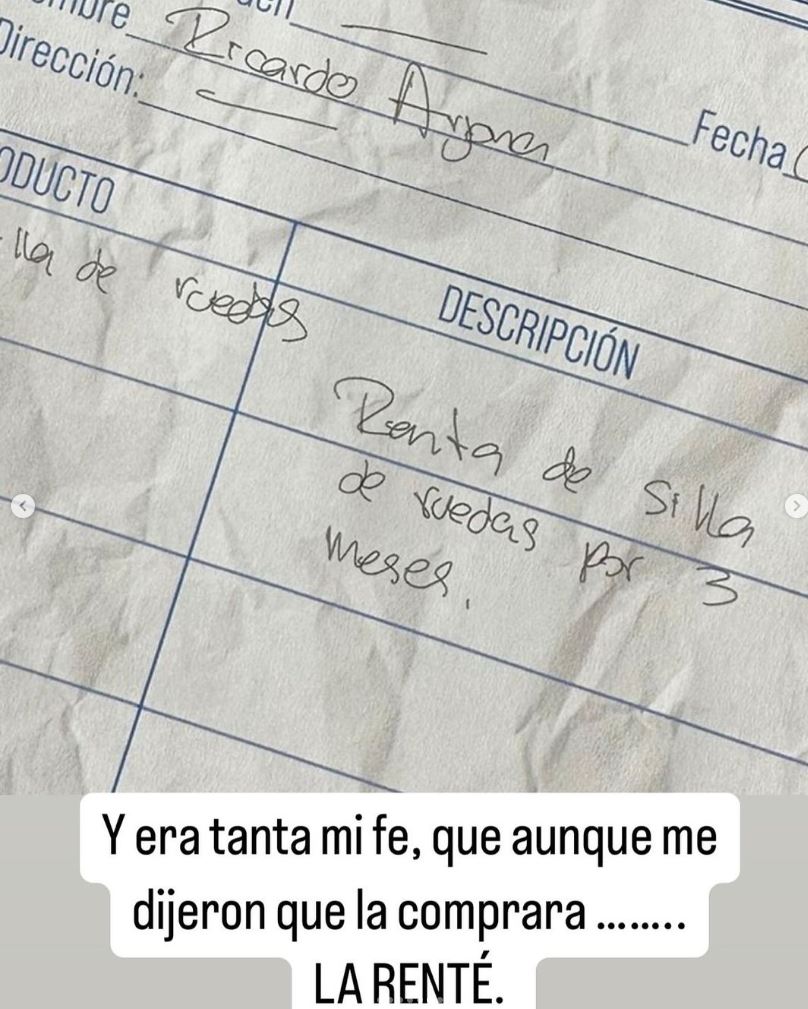 Ricardo Arjona
Dirección:
Fecha
DESCRIPCIÓN
lla de ruedas
Renta de silla
de ruedas por 3
meses.
Y era tanta mi fe, que aunque me
dijeron que la comprara ........
LA RENTÉ.